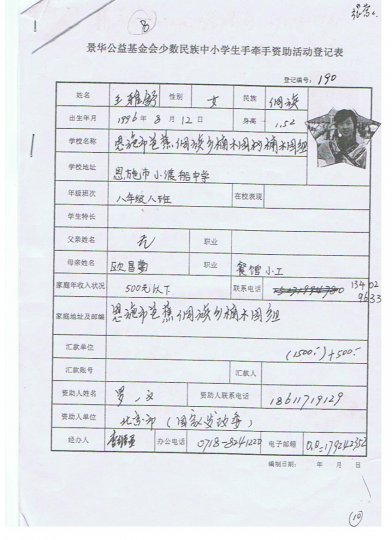 B
景华公益基金会少数民族中小学生手牵手资助活动登记表
登记编号: 190
姓名 王雅 性别 女 民族 侗族
出生年月 1996年8月12日 身高 1.52
学校名称 恩施市芭蕉侗族乡楠木园村楠木园组
学校地址 恩施市小渡船中学
年级班次 八年级八班 在校表现
学生特长
父亲姓名 无 职业
母亲姓名 欧昌菊 职业 餐馆小工
家庭年收入状况 500元以下 联系电话 13402
9633
家庭地址及邮编 恩施市芭蕉侗族乡楠木园组
汇款单位 (1500-)+500-
汇款账号 汇款人
资助人姓名 罗 资助人联系电话 18611719129
资助人单位 北京市(国家发改委)
经办人 办公电话 0718-8041220 电子邮箱
编制日期: 年 月 日
(10)